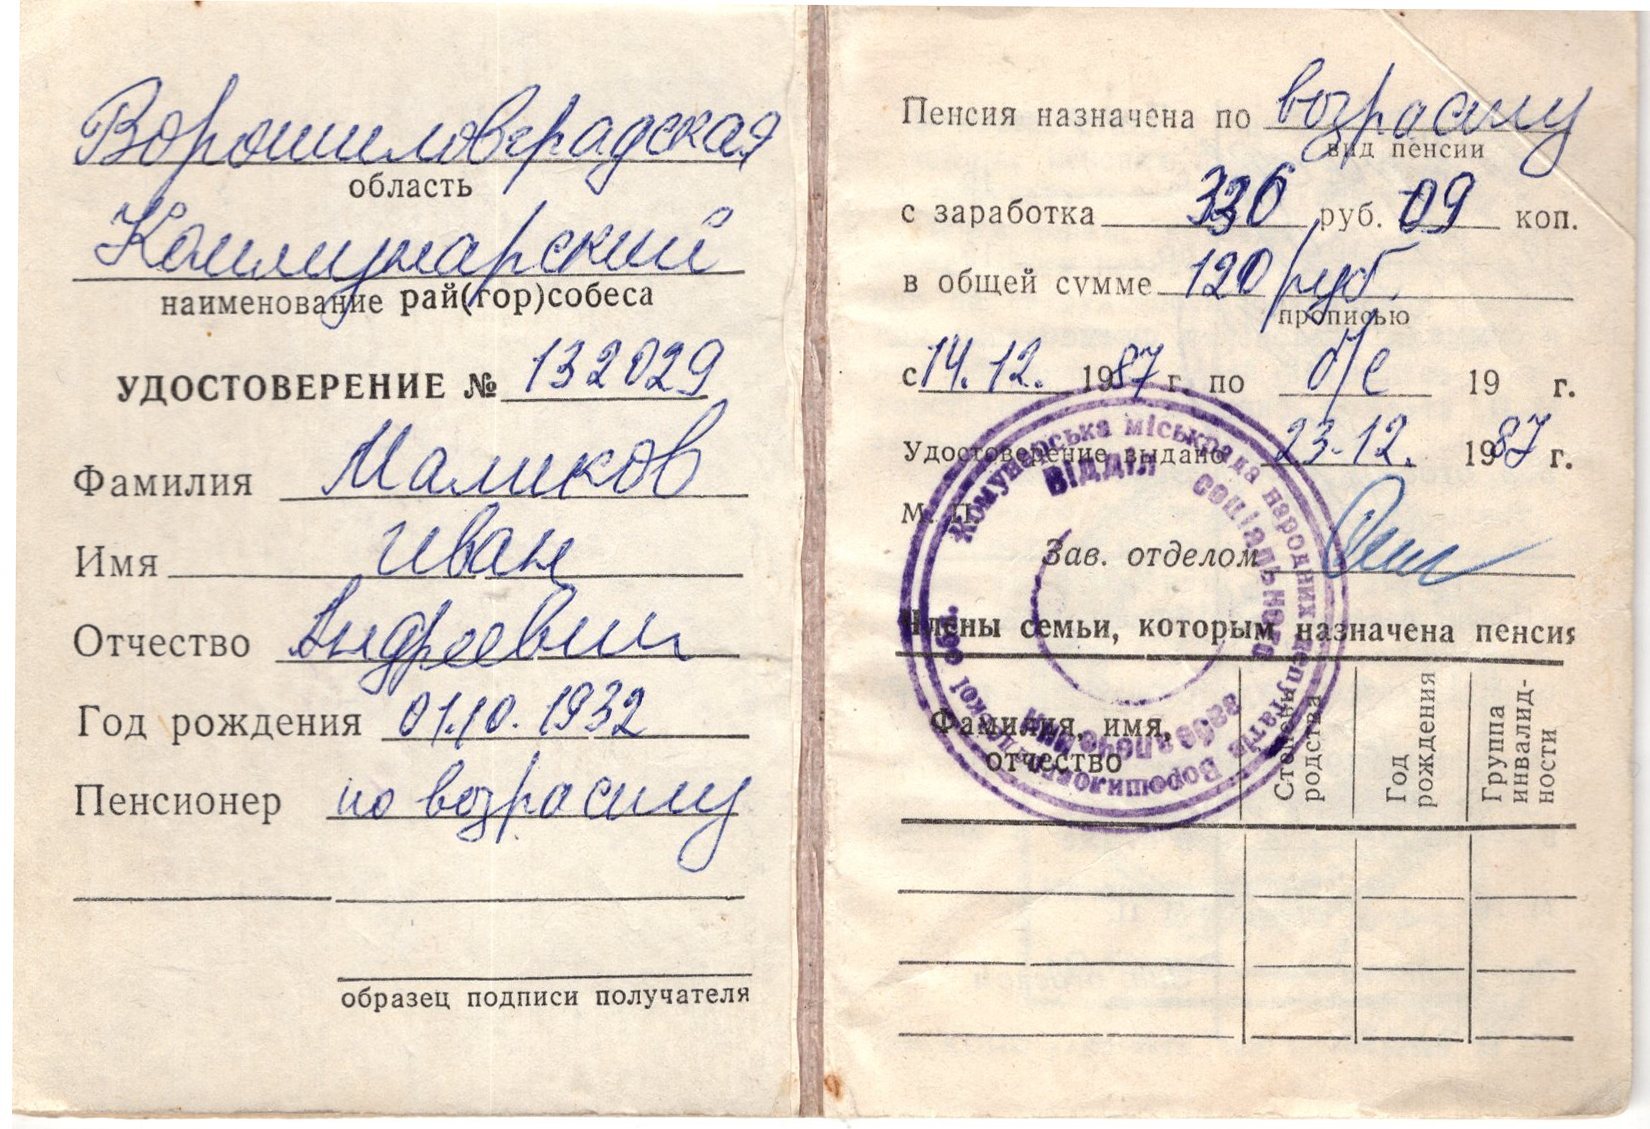 Ворошиловградская
область
Коммунарский
наименование рай(гор)собеса
УДОСТОВЕРЕНИЕ № 132029
Фамилия Маликов
Имя Иван
Отчество Андреевич
Год рождения 01.10.1932
Пенсионер по возрасту
образец подписи получателя
Пенсия назначена по возрасту
вид пенсии
с заработка 336 руб. 09 коп.
в общей сумме 120 руб.
прописью
с 14.12. 1987 г. по б/с 19 г.
Удостоверение выдано 23.12. 1987 г.
М. П.
Зав. отделом
Члены семьи, которым назначена пенсия
Фамилия, имя, отчество
Степень родства
Год рождения
Группа инвалид-
ности
Комунарська міськрада народних депутатів Ворошиловградської обл.
Відділ соціального забезпечення